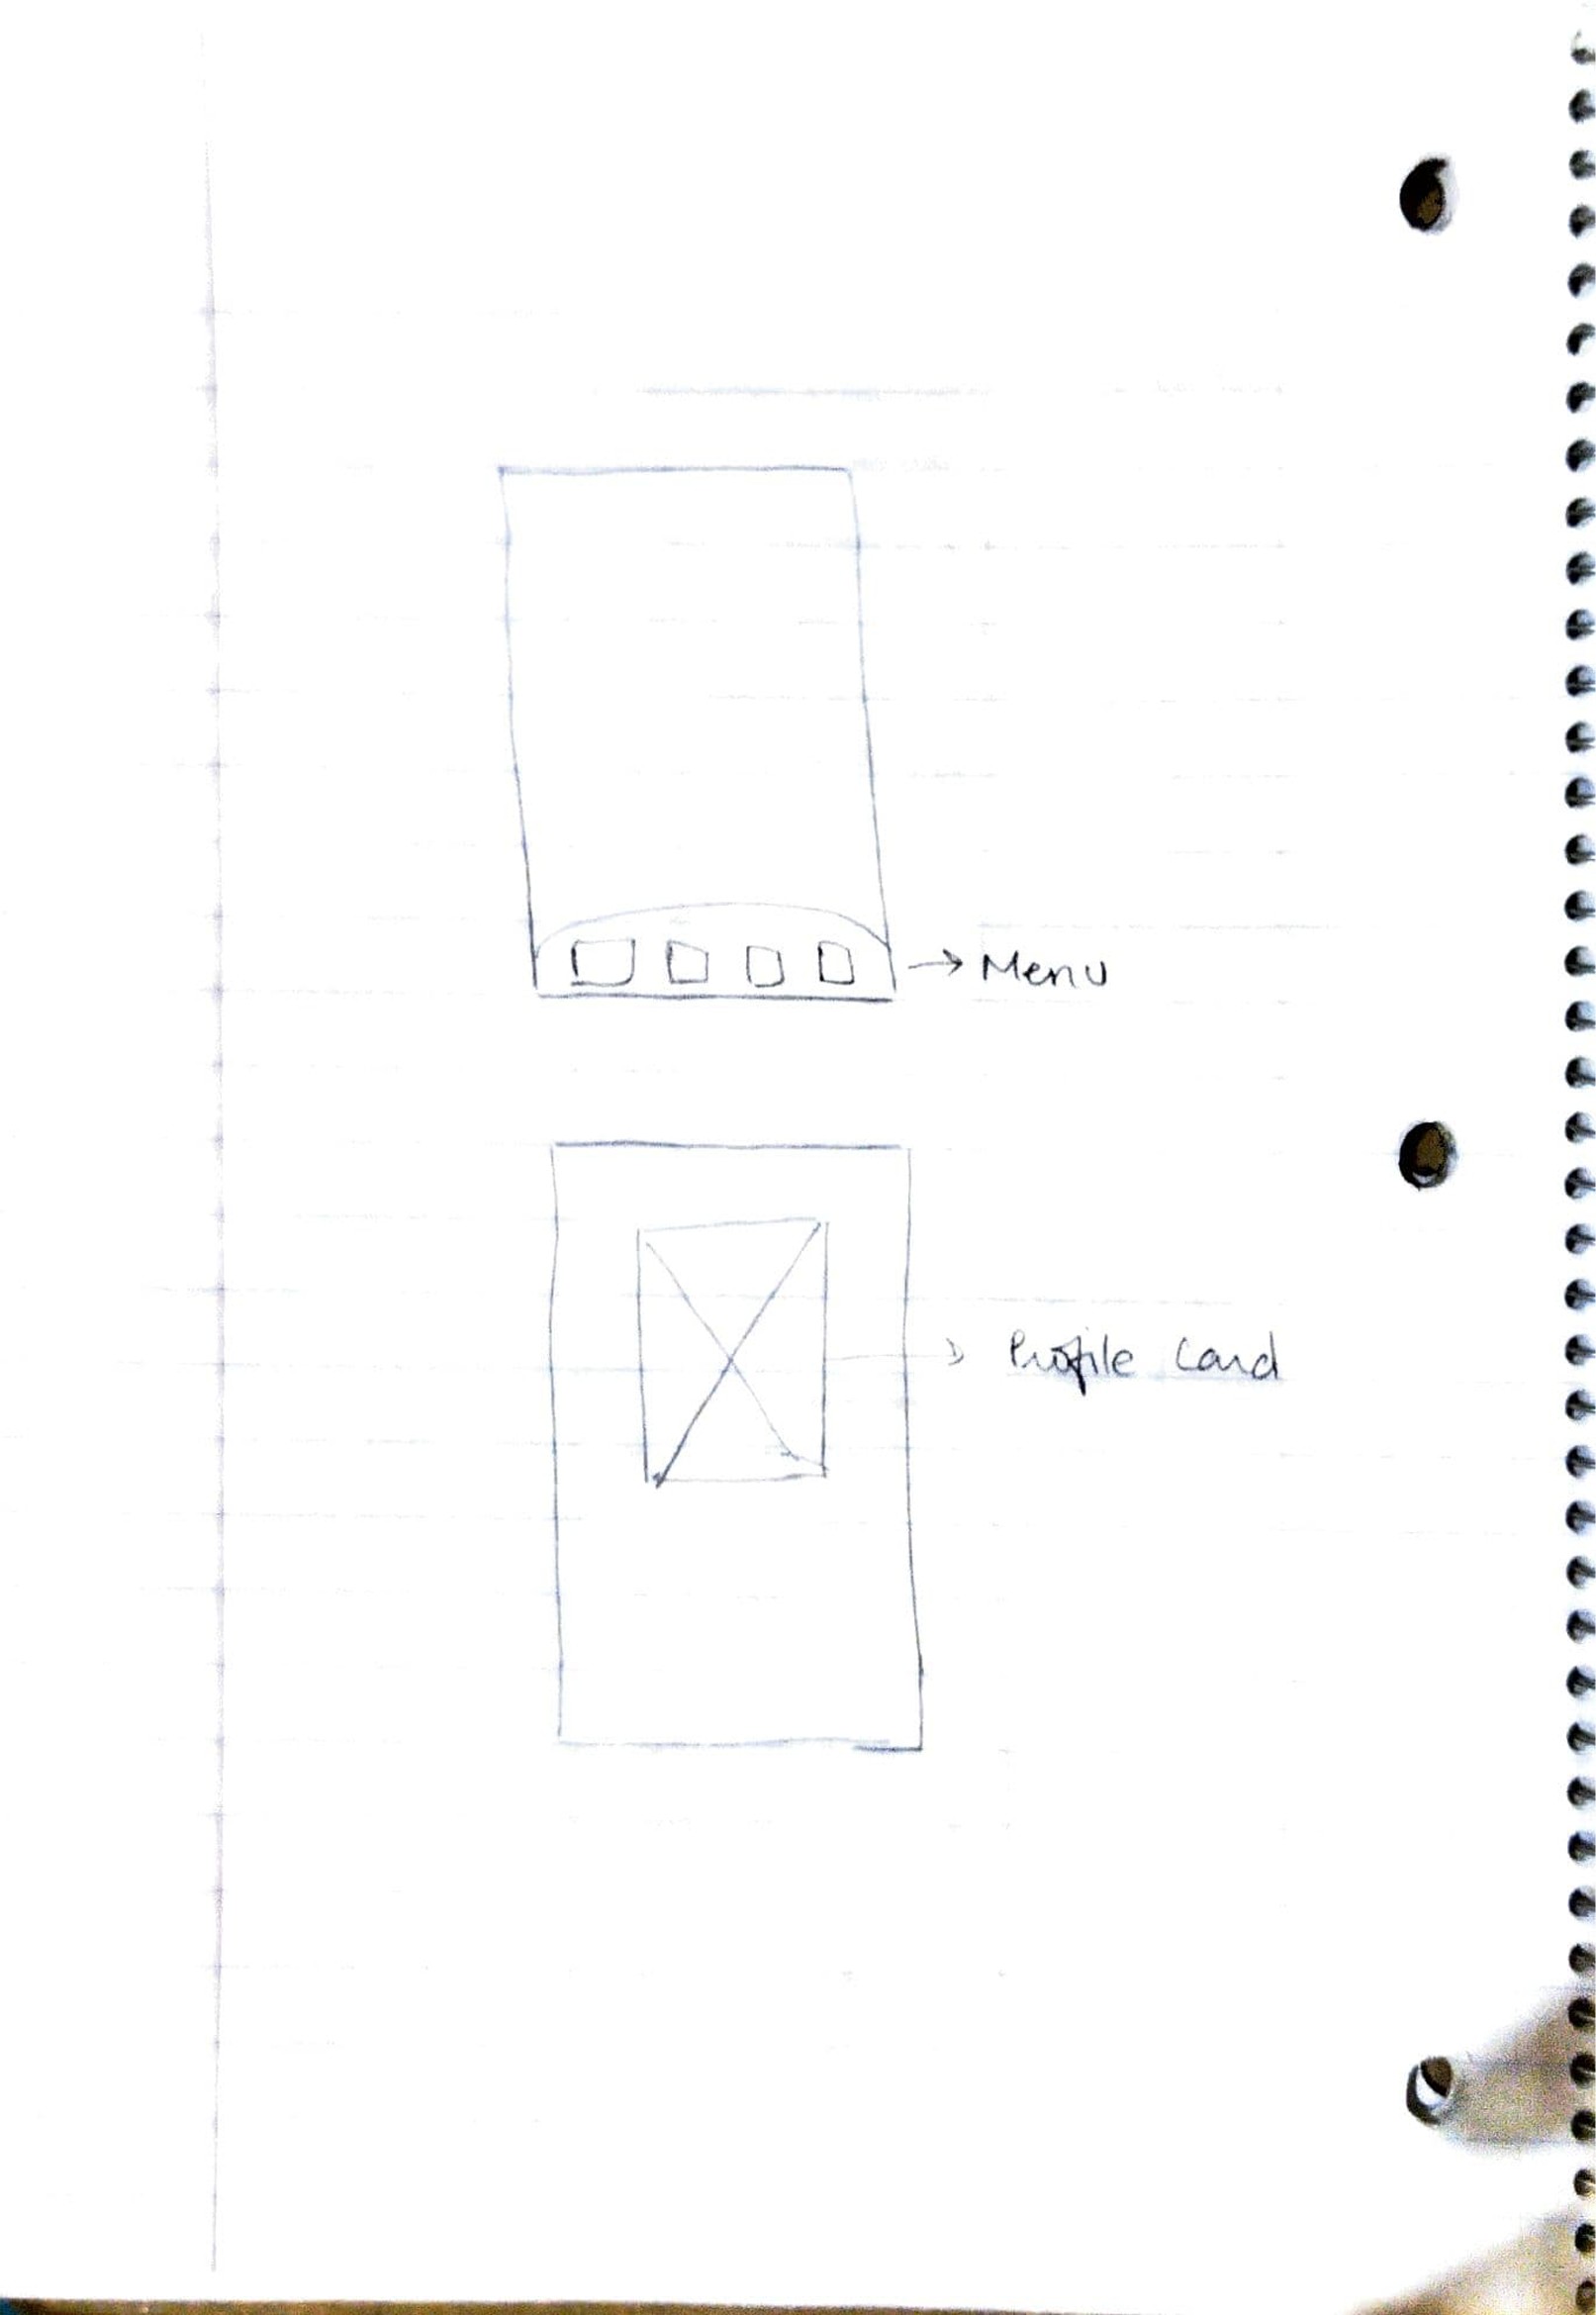 Menu
Profile Card